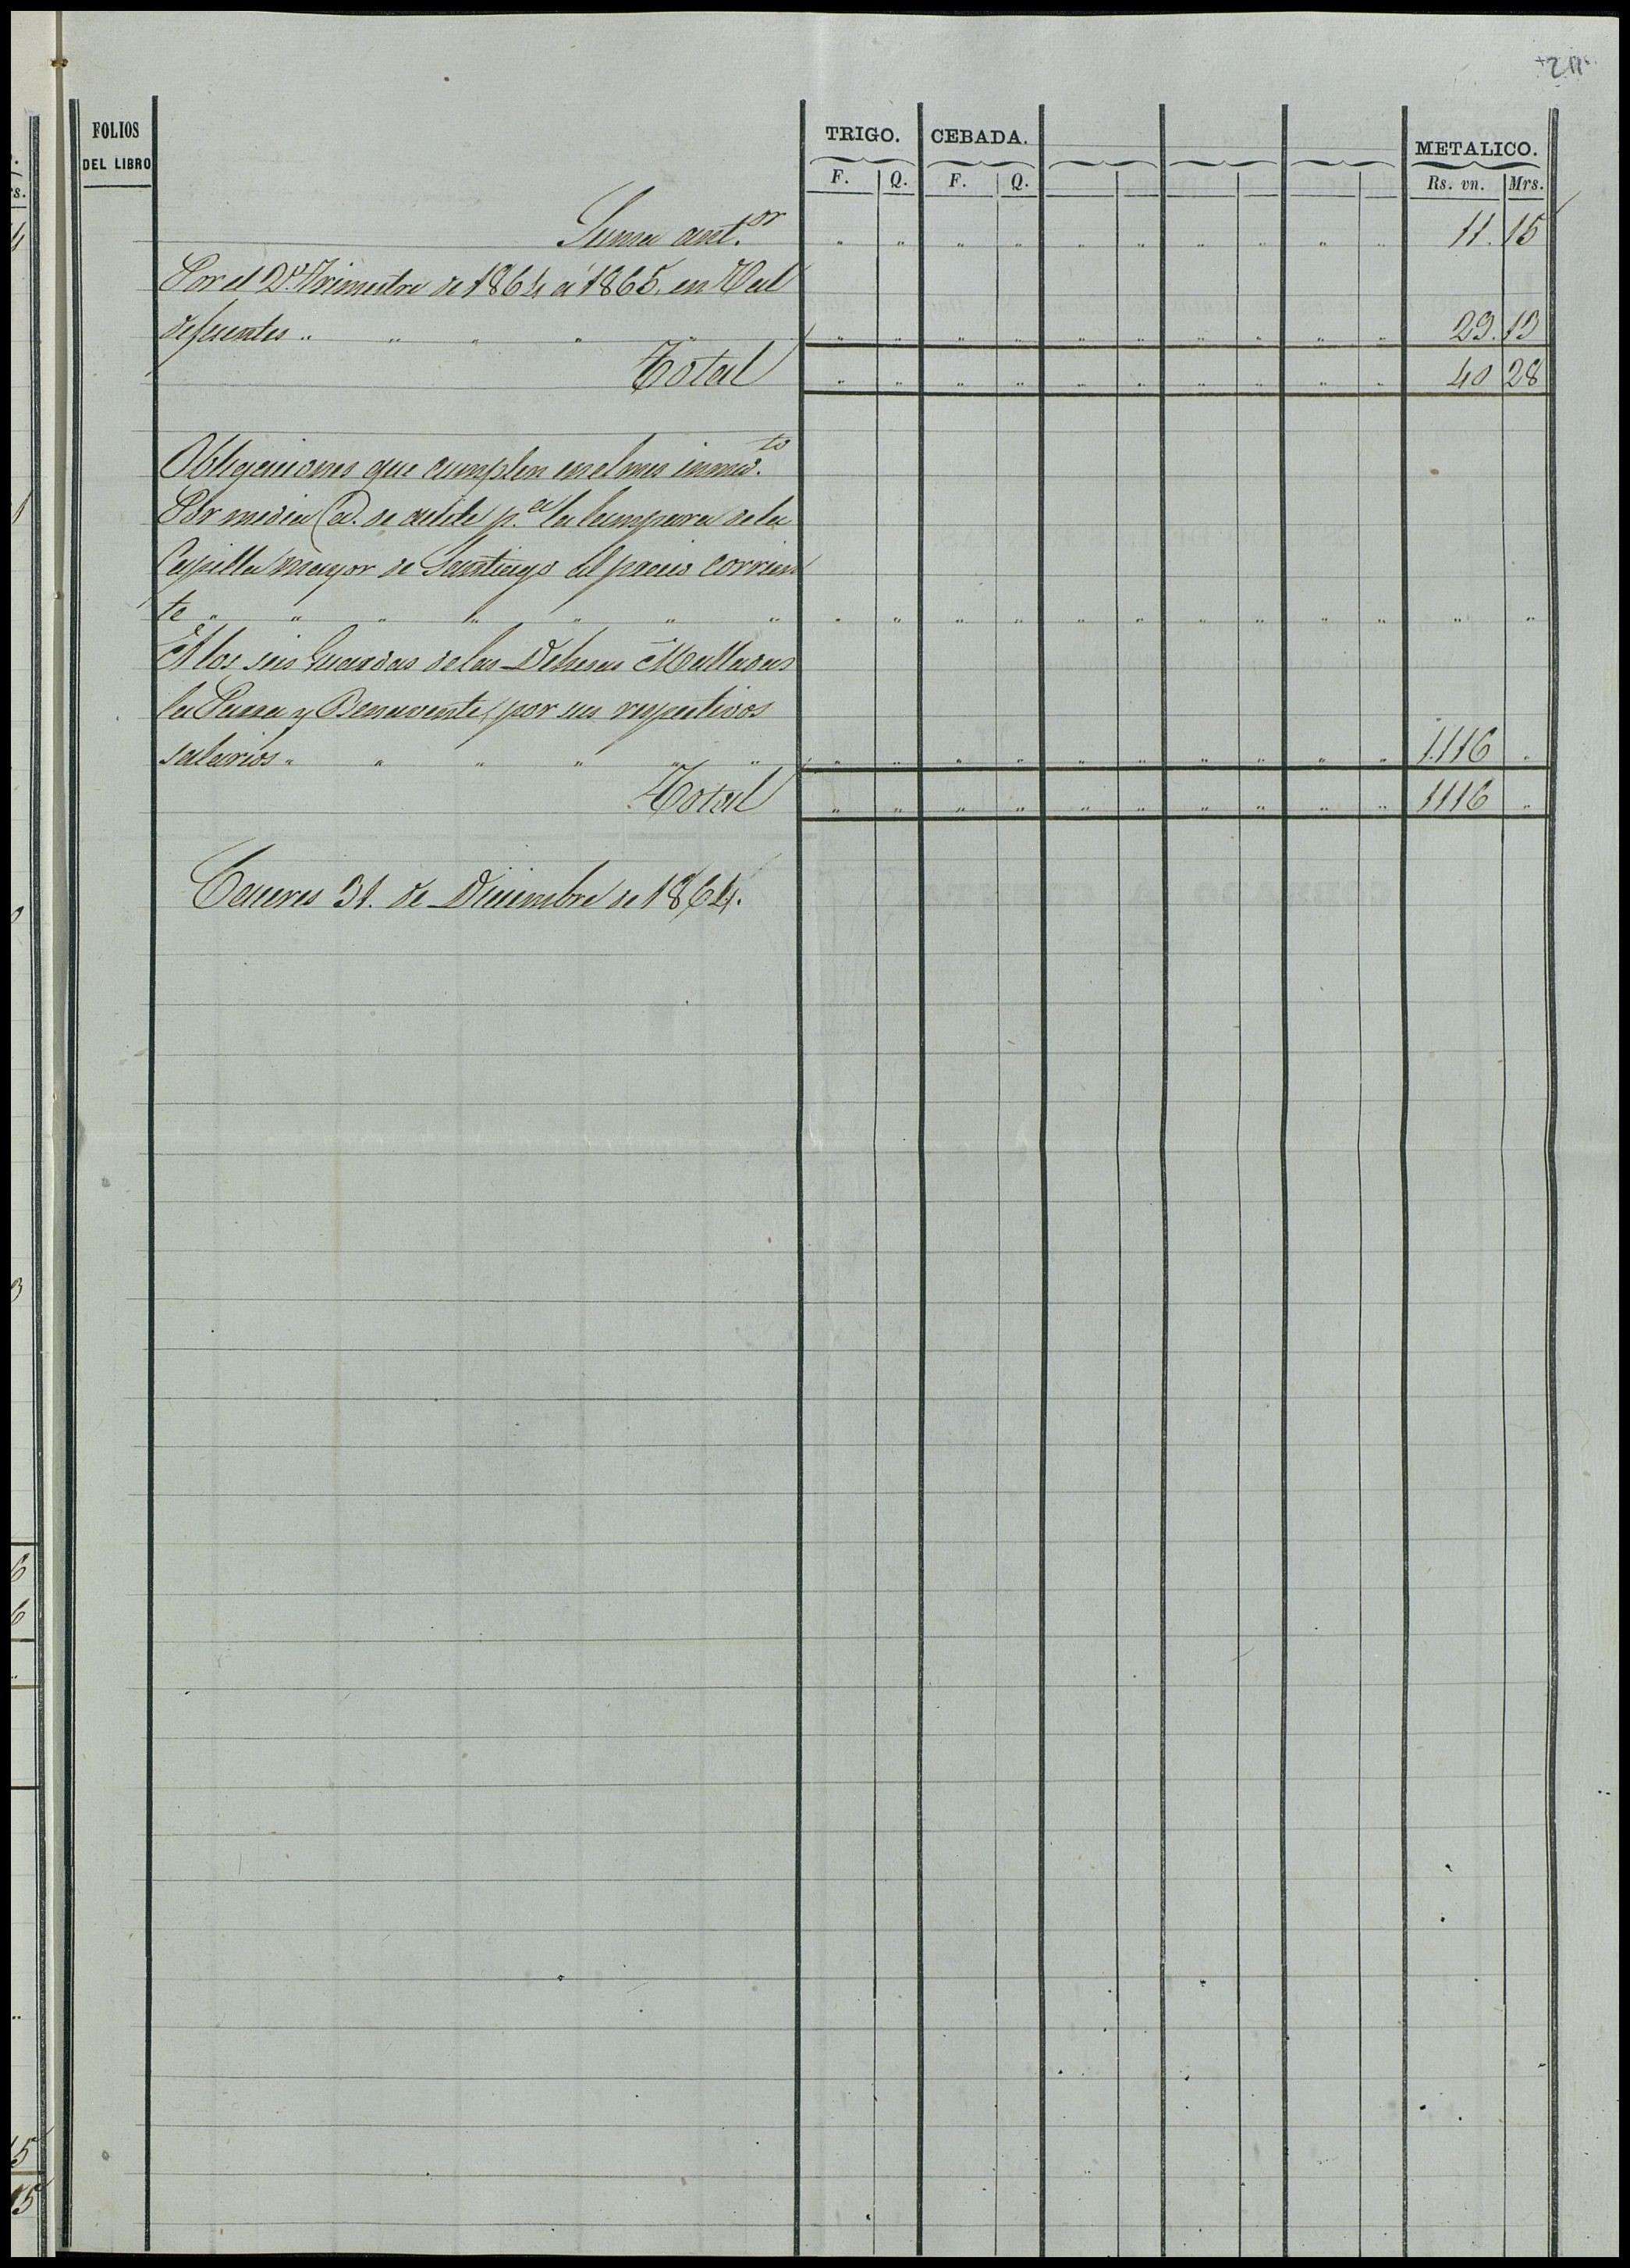 211
FOLIOS
DEL LIBRO
TRIGO. CEBADA. METALICO.
F. Q. F. Q. Rs. vn. Mrs.
Suma ant.or " " " " " " " " " " 11. 15
Por el 2º Trimestre de 1864 a 1865, en Val
defuentes " " " " " " " " " " " " " " " 29. 13
Total " " " " " " " " " " 40 28
Obligaciones que cumplen en el mes inmed.to
Por media @. de aceite p.a la lampara de la
Capilla mayor de Santiago al precio corrien
te " " " " " " " " " " " " " " " " " " "
A los seis Guardas de las Dehesas Malladas
la Parra y Benavente, por sus respectivos
salarios " " " " " " " " " " " " " " " " 1.116 "
Total " " " " " " " " " " 1116 "
Caceres 31. de Diciembre de 1864.